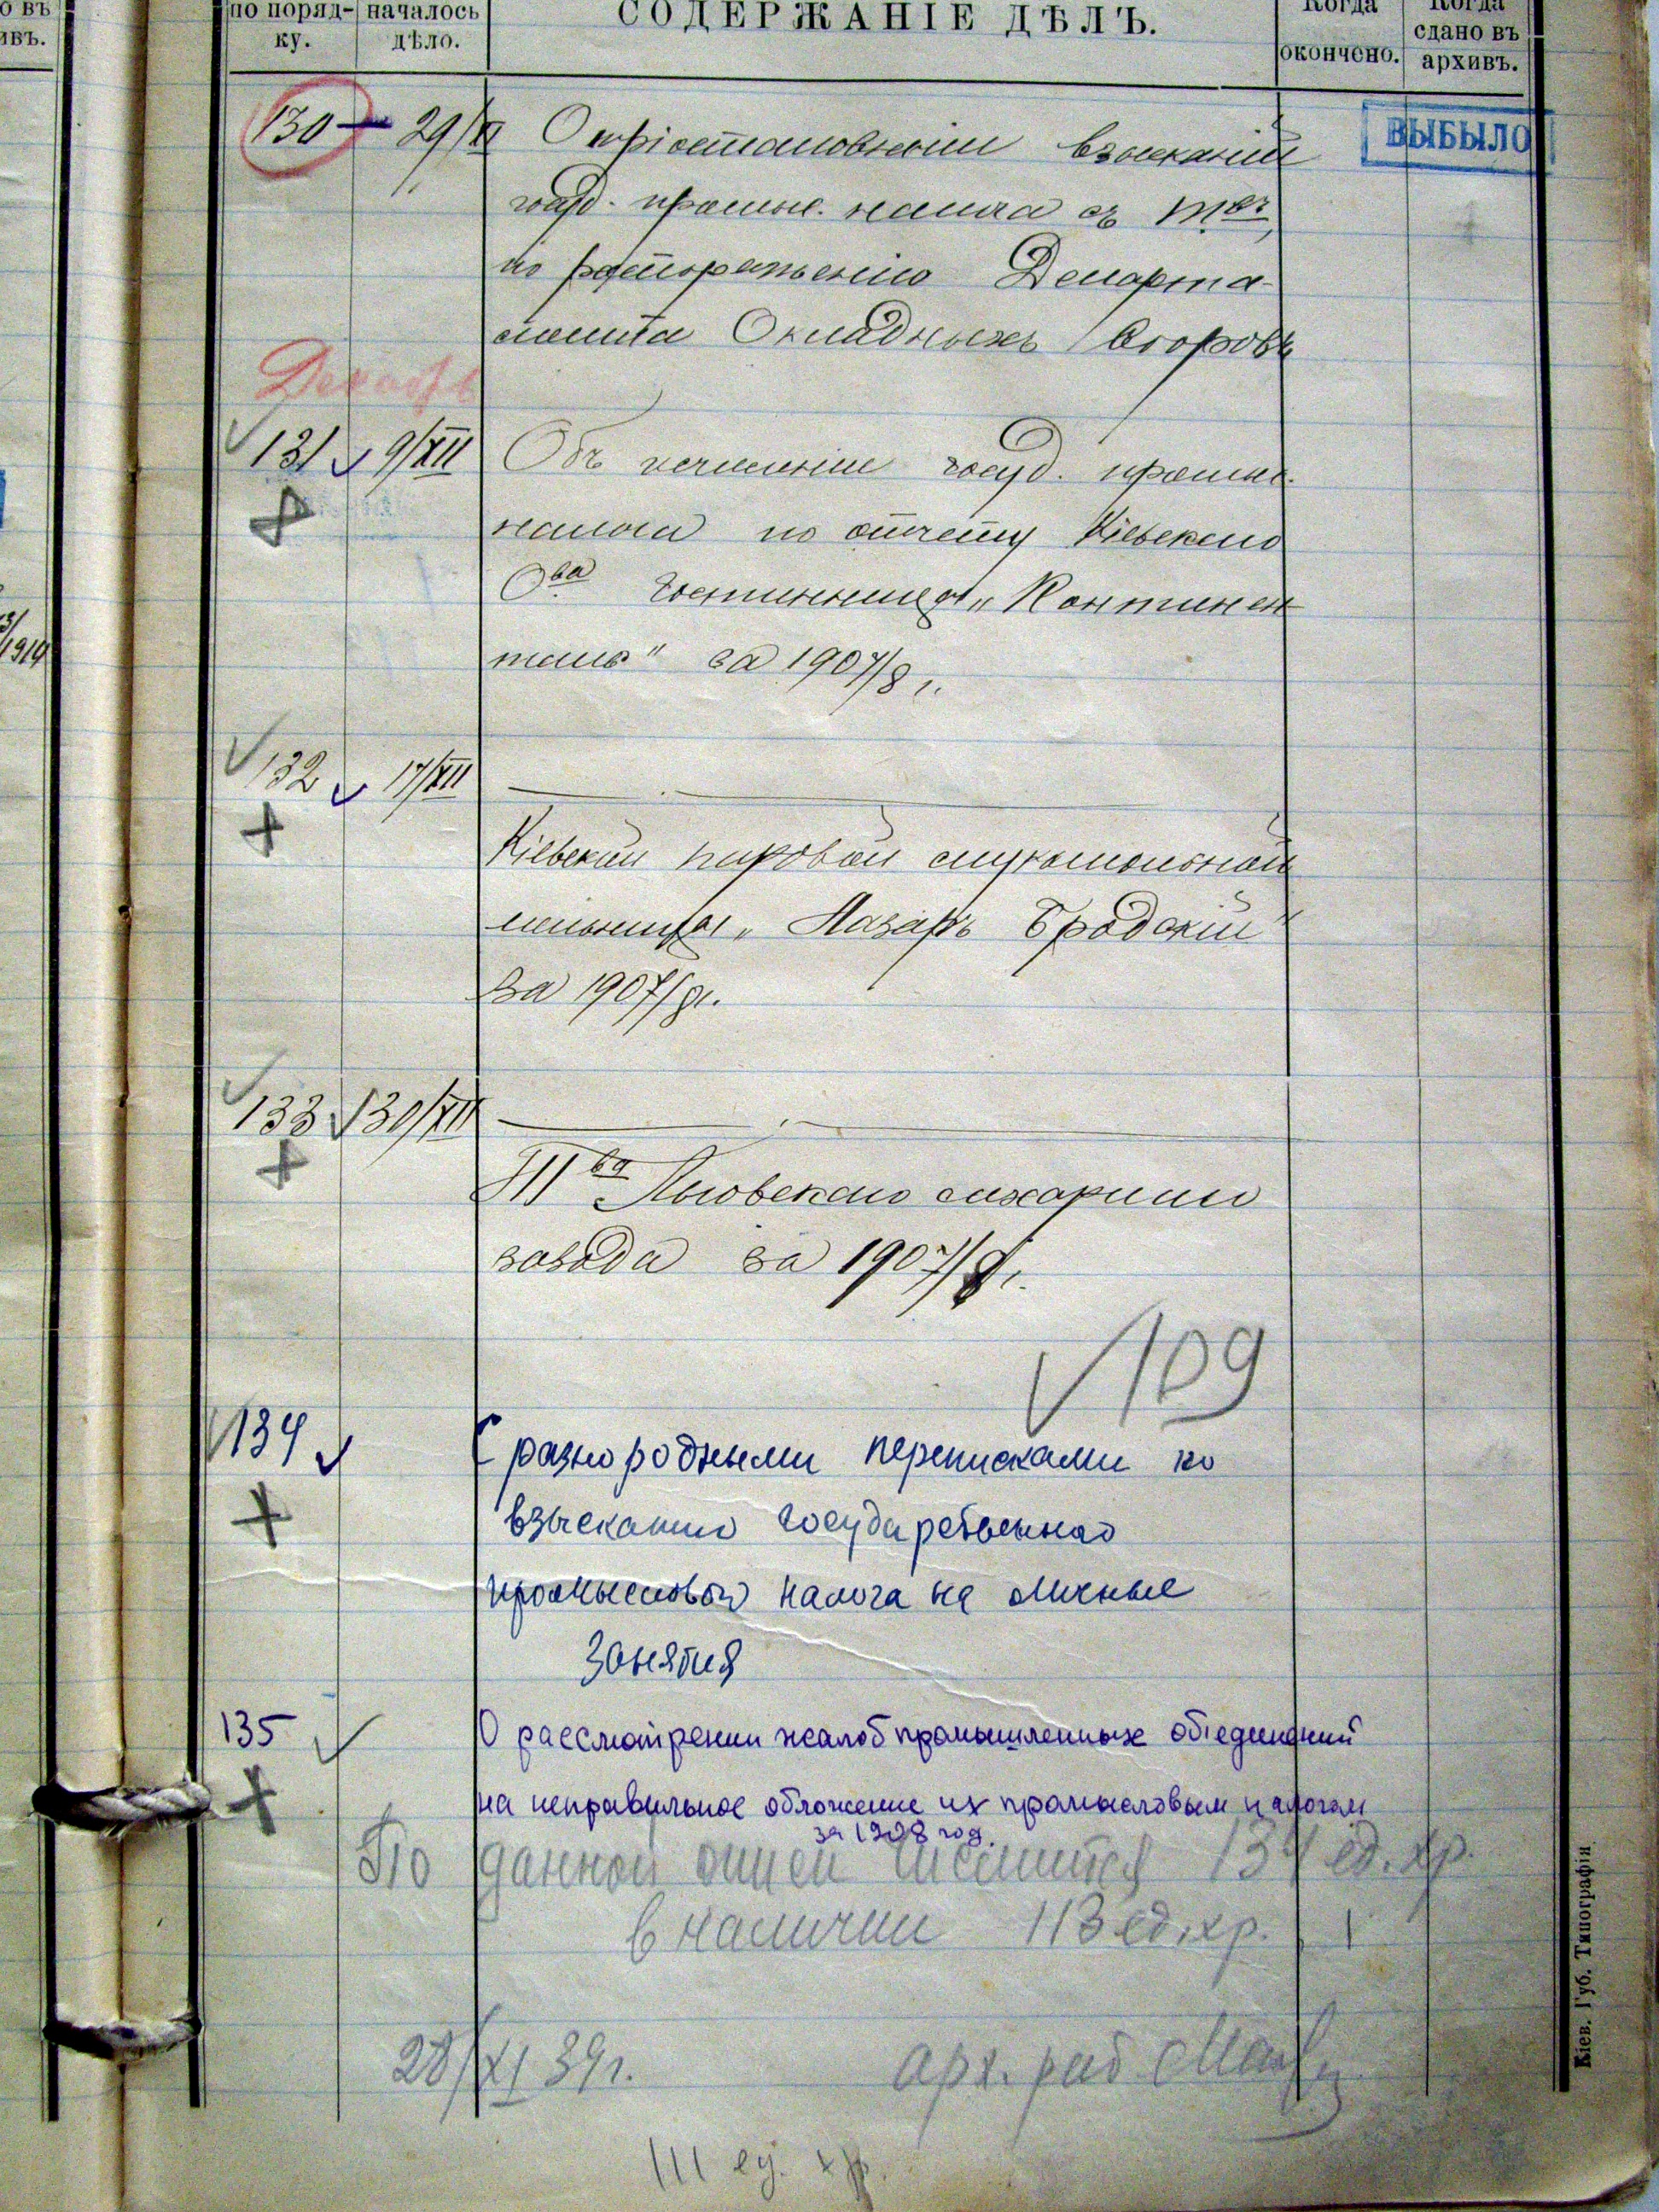 по поряд-
ку.
началось
дѣло.
СОДЕРЖАНІЕ ДѢЛЪ.
Когда
окончено.
Когда
сдано въ
архивъ.
о въ
ивъ.
130 — 29/XI О пріостановленіи взысканій
госуд. промысл. налога съ Т-въ,
по распоряженію Департа-
мента Окладныхъ Сборовъ
ВЫБЫЛО
Декабрь
131 9/XII Объ исчисленіи госуд. промысл.
налога по отчету Кіевскаго
О-ва Гостинницы „Континен-
таль" за 1907/8 г.
1914
132 17/XII
Кіевской паровой мукомольной
мельницы „Лазарь Бродскій"
за 1907/8 г.
133 30/XII
Т-ва Льговскаго сахарнаго
завода за 1907/8 г.
109
134 С разнородными переписками по
взысканию государственного
промыслового налога на личные
занятия
135 О рассмотрении жалоб промышленных обіединений
на неправильное обложение их промысловым налогом
за 1908 год.
По данной описи числится 134 ед. хр.
в наличии 113 ед. хр.
28/XI 39 г. арх. раб.
111 ед. хр.
Кіев. Губ. Типографія